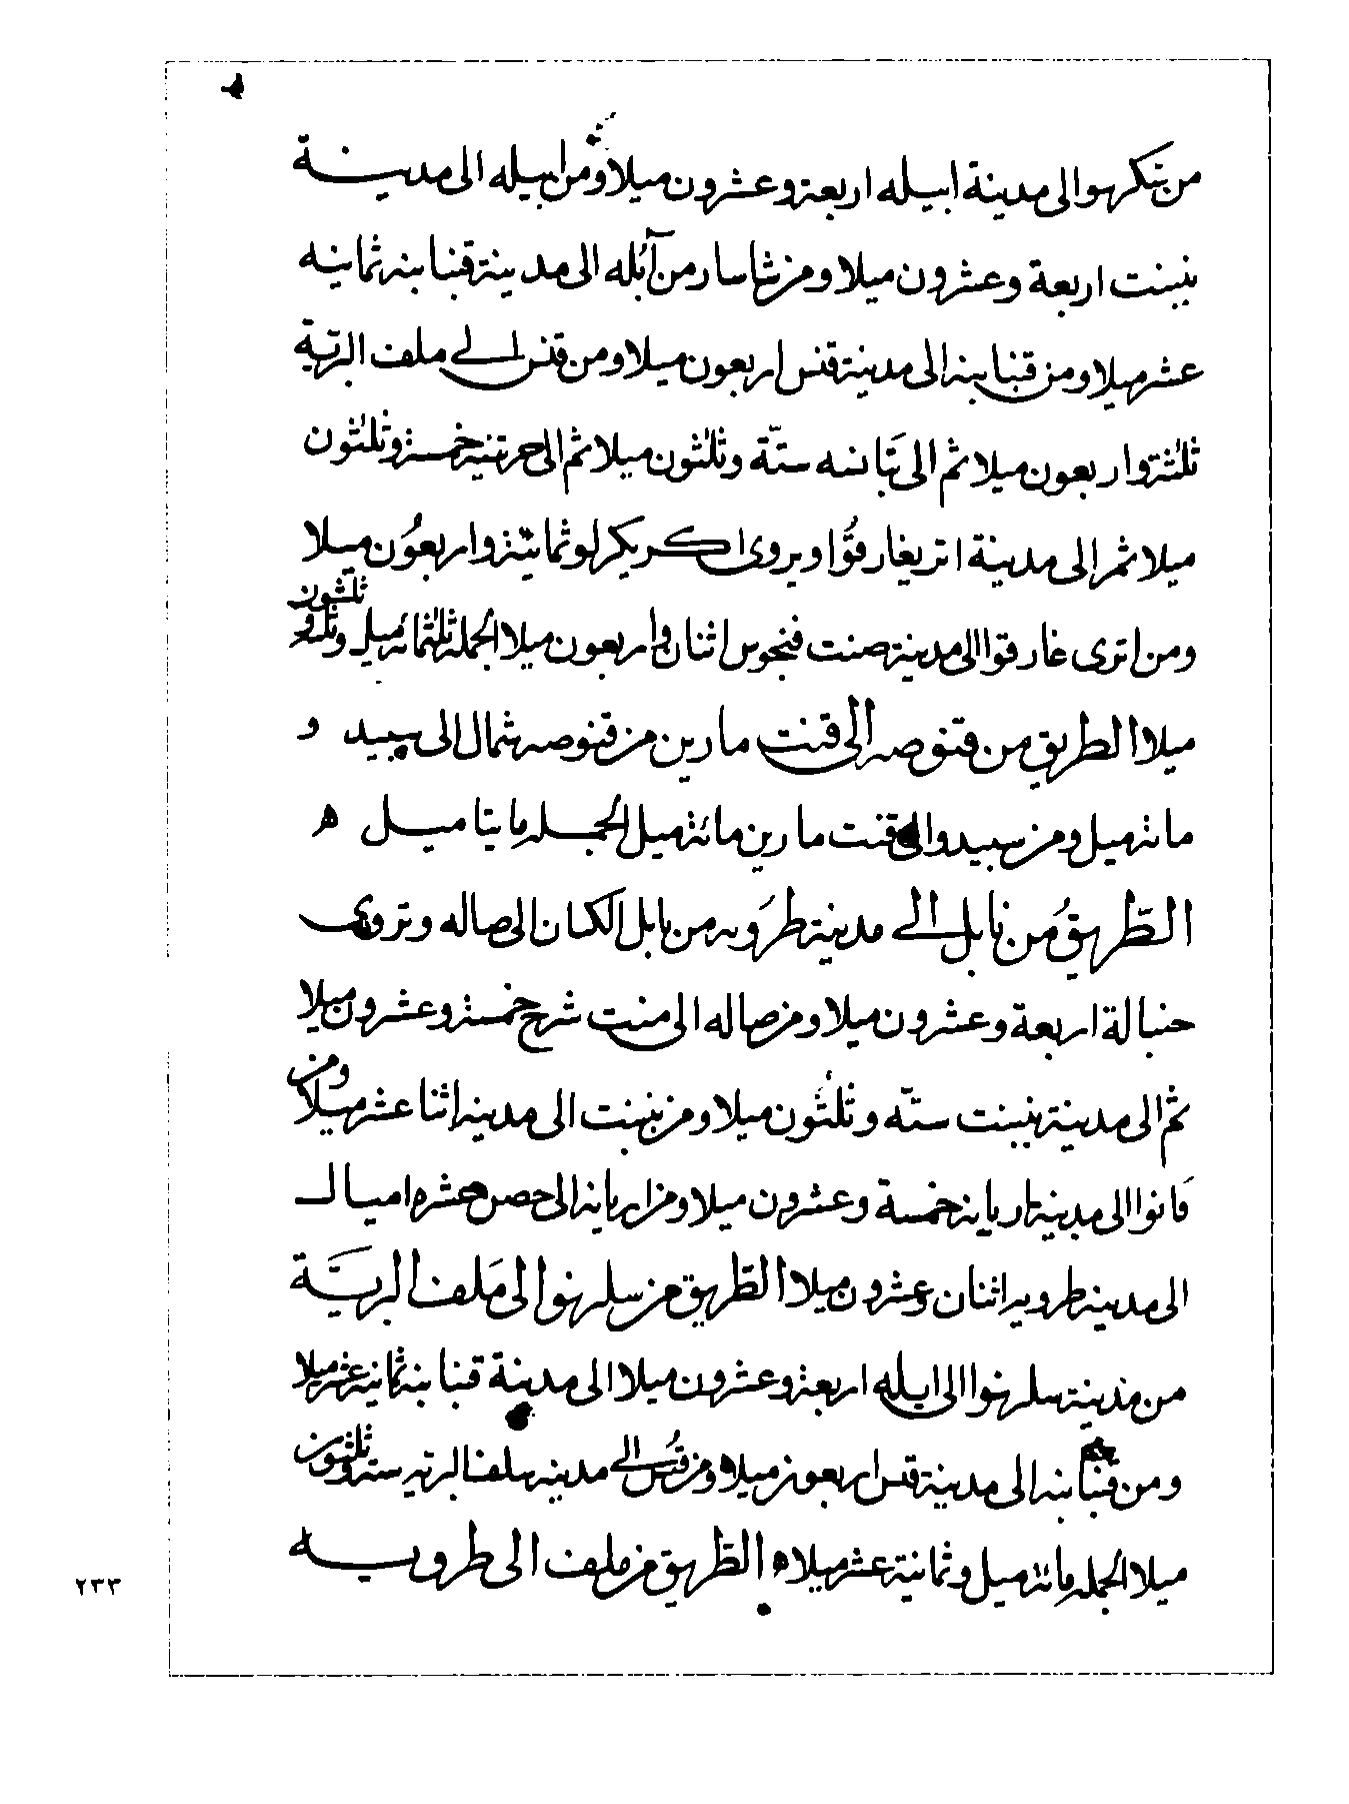 من تنكرهوا الى مدينة ابيله اربعة وعشرون ميلا ومن ابيله الى مدينة
بنبنت اربعة وعشرون ميلا ومن شاسار من آبُله الى مدينة قنبابنه ثمانيه
عشر ميلا ومن قنبابنه الى مدينة قنس اربعون ميلا ومن قنس الى ملف البرّية
ثلثة واربعون ميلا ثم الى بَتانسه ستّة وثلثون ميلا ثم الى جرتنيه خمسة وثلثون
ميلا ثم الى مدينة اتريغارقوُّا ويروى اكريكرلو ثمانية واربعُون ميلا
ومن اترى غارقوا الى مدينة صنت فنجوس اثنان واربعون ميلا الجملة ثلثمائة ميل وثلثة وثلثون
ميلا الطريق من قتنوصه الى قنت مارين من قتنوصه شمال الى سبيدو
مائة ميل ومن سبيدو الى قنت مارين مائة ميل الجمله مايتا ميل ه
الطّريقُ من نابل الى مدينة طرَويه من نابل الكتان الى صاله وتروى
جنبالة اربعة وعشرون ميلا ومن صاله الى منت شرج خمسة وعشرون ميلا
ثم الى مدينة بنبنت ستّه وثلثون ميلا ومن بنبنت الى مدينه اثنا عشر ميلا ومن
قَانوا الى مدينة اريانه خمسة وعشرون ميلا ومن اريانه الى حصن عشره اميال
الى مدينه طرويه اثنان وعشرون ميلا الطّريق من سلرنوا الى مَلف البريَّة
من مدينة سلرنوا الى ابله اربعة وعشرون ميلا الى مدينة قنبابنه ثمانية عشر ميلا
ومن قنبابنه الى مدينة قنس اربعون ميلا ومن قنُس الى مدينه ملف البريه ستة وثلثون
ميلا الجمله مائة ميل وثمانية عشر ميلا ه الطّريق من ملف الى طرويه
٢٣٣